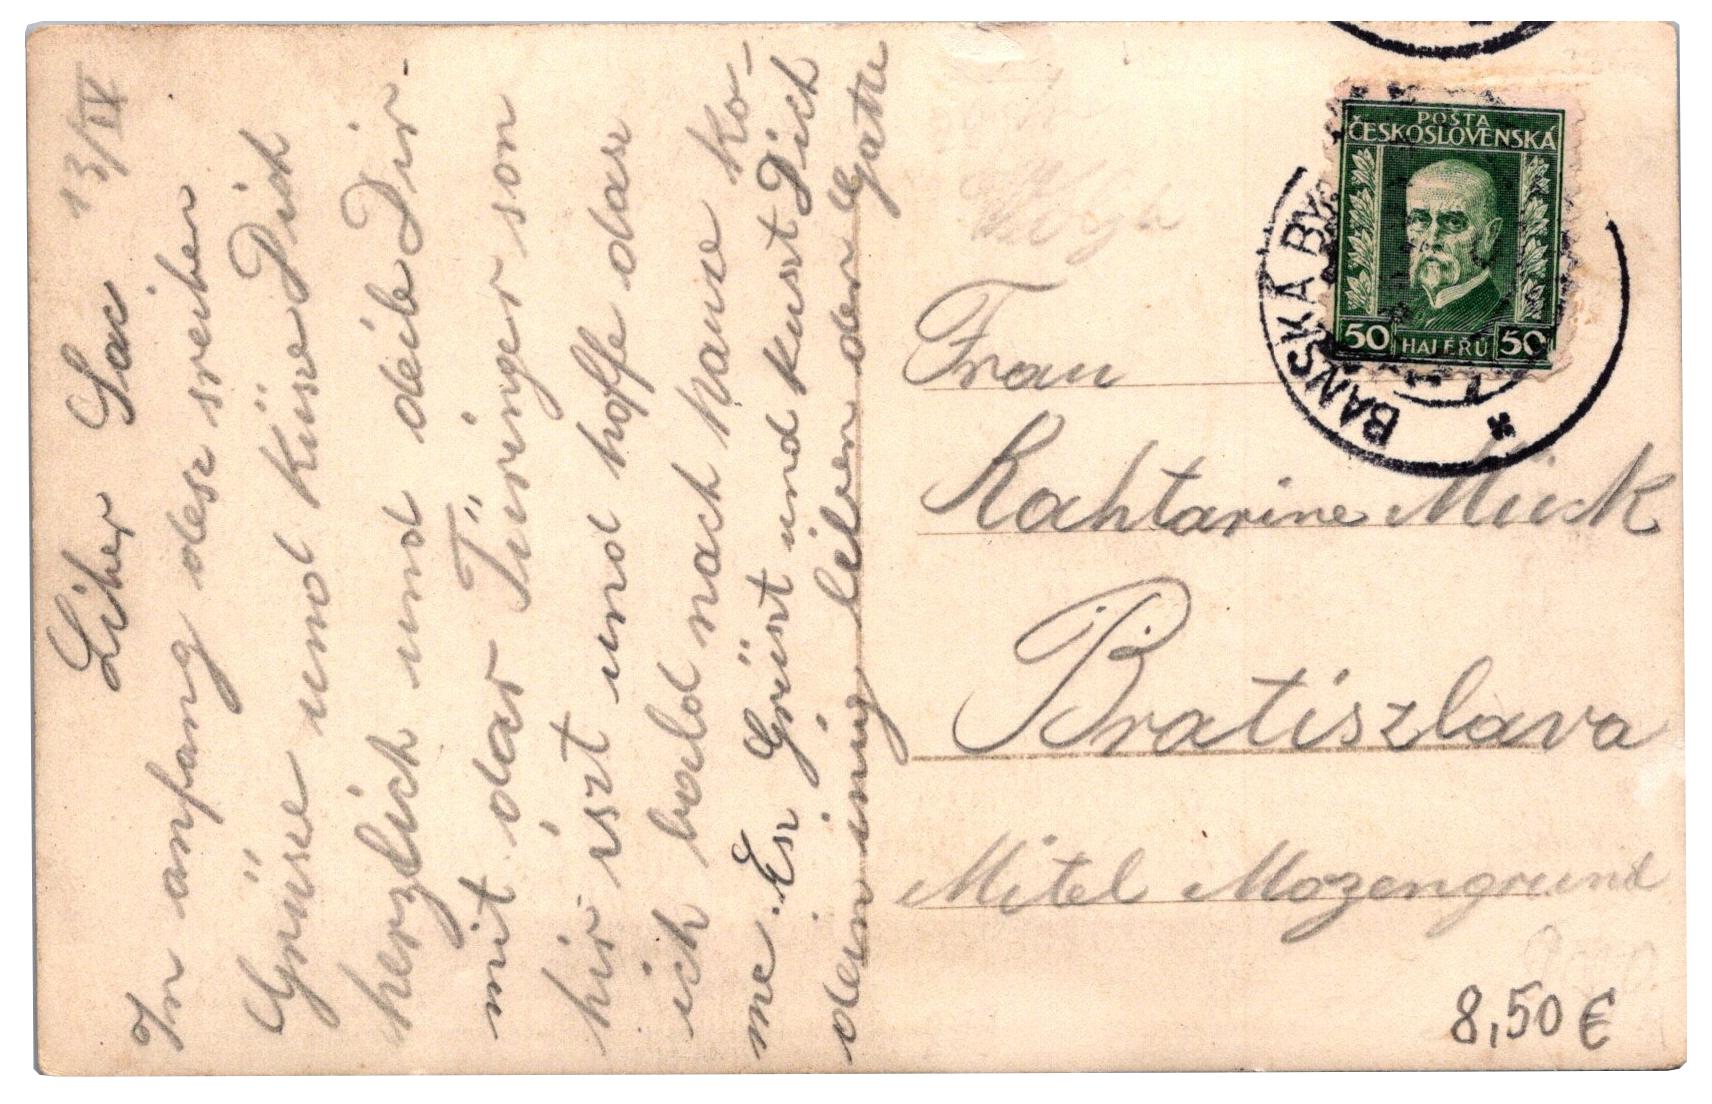 13/IV
Liber Sac
In anfang desz sreiben
Grüsze und Küsze Dich
herzlich und déile Dir
mit dasz Türinger son
hir iszt und hoffe dasz
ich bald nach hausze ko-
me. Esz Grüszt und kuszt Dich
dein inig liben der Gatte
POŠTA
ČESKOSLOVENSKÁ
50 HALÉŘŮ 50
BANSKÁ BY
Frau
Kahtarine Muck
Bratiszlava
Mitel Mozengrund
8,50 €